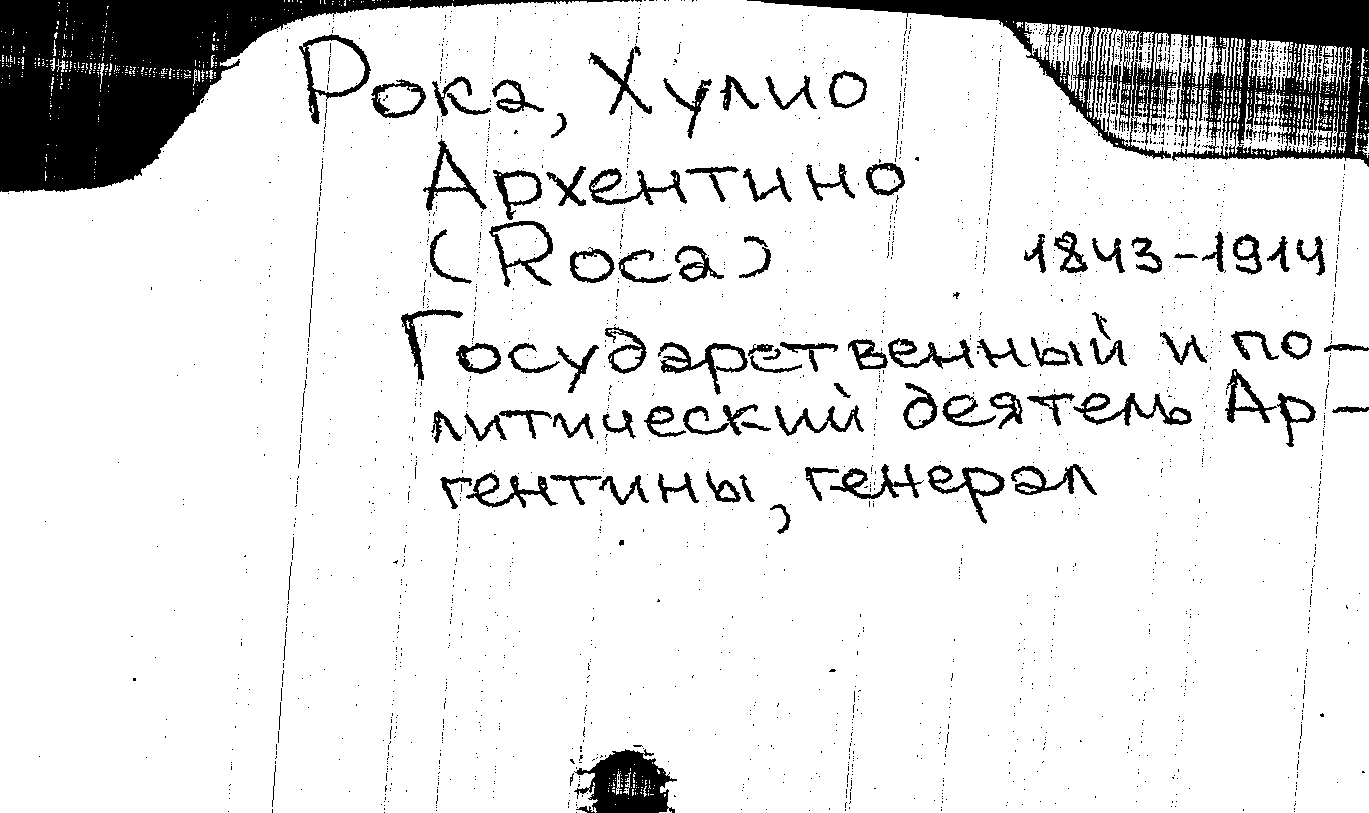 Рока, Хулио
Архентино
(Roca) 1843-1914
Государственный и по-
литический деятель Ар-
гентины, генерал